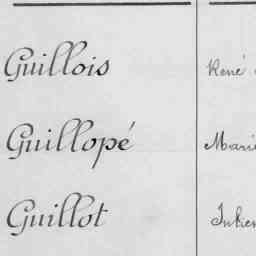 Guillois René
Guillopé Marie
Guillot Julien